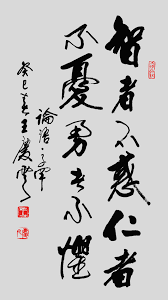 智者不惑仁者
不憂勇者不懼
論語之章
癸巳春王慶雲